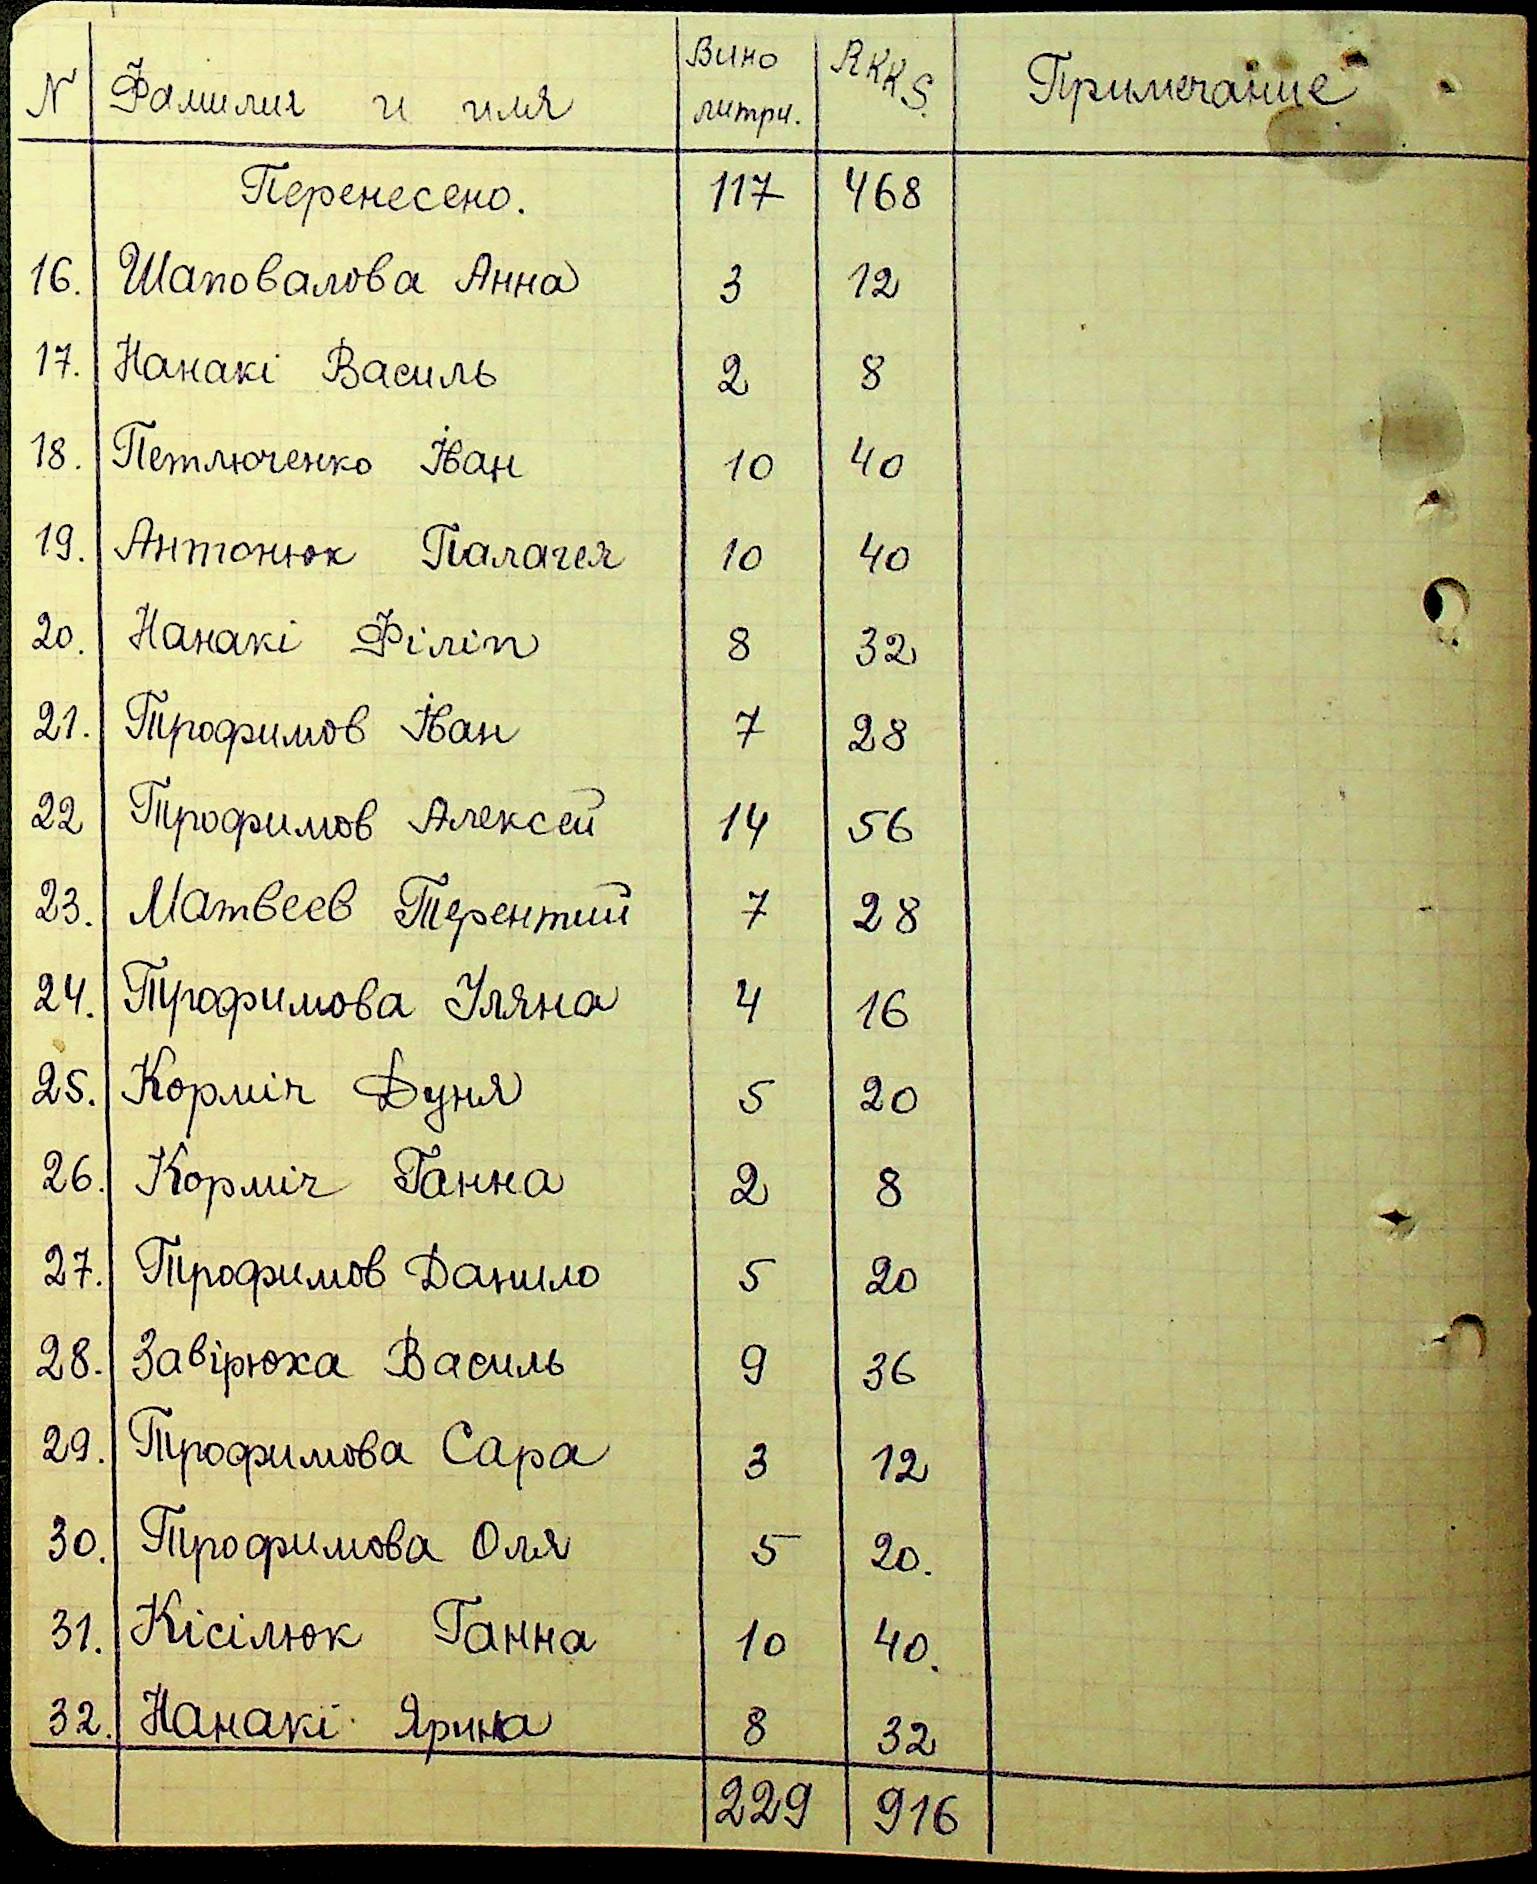 N Фамилия и имя Вино литри. RKKS. Примечание
Перенесено. 117 468
16. Шаповалова Анна 3 12
17. Нанакі Василь 2 8
18. Петлюченко Іван 10 40
19. Антонюк Палагея 10 40
20. Нанакі Філіп 8 32
21. Трофимов Іван 7 28
22 Трофимов Алексей 14 56
23. Матвеев Терентий 7 28
24. Трофимова Уляна 4 16
25. Корміч Дуня 5 20
26. Корміч Ганна 2 8
27. Трофимов Данило 5 20
28. Завірюха Василь 9 36
29. Трофимова Сара 3 12
30. Трофимова Оля 5 20.
31. Кісілюк Ганна 10 40.
32. Нанакі Ярина 8 32
229 916